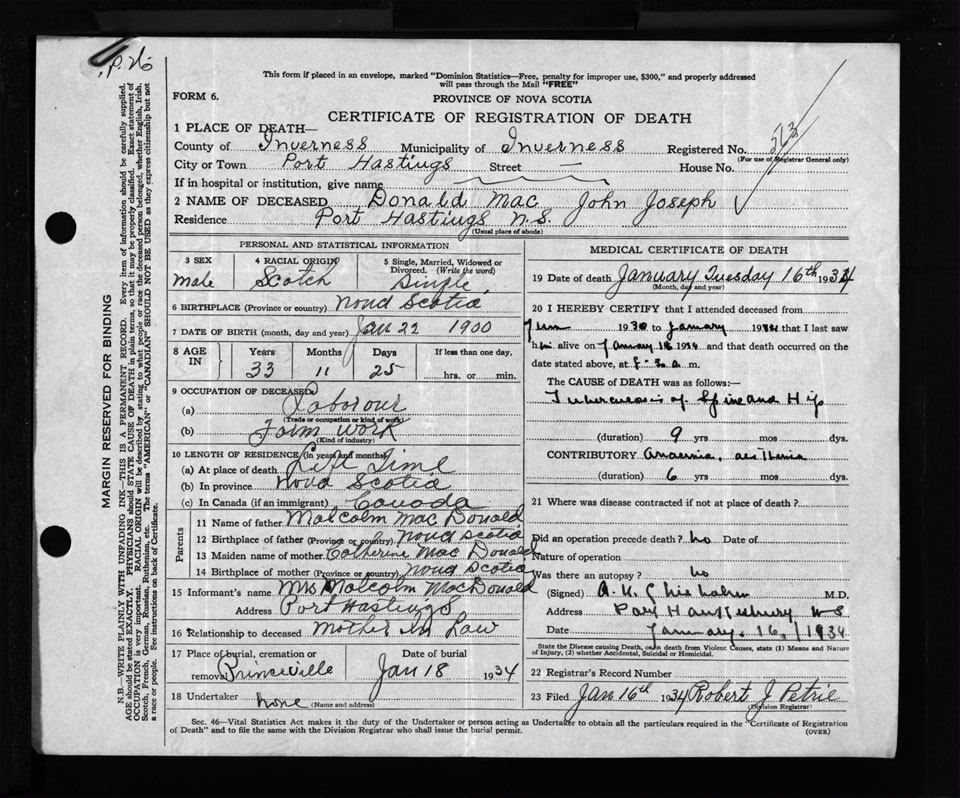 P. 26
This form if placed in an envelope, marked "Dominion Statistics—Free, penalty for improper use, $300," and properly addressed
will pass through the Mail "FREE"
FORM 6.
PROVINCE OF NOVA SCOTIA
CERTIFICATE OF REGISTRATION OF DEATH
1 PLACE OF DEATH—
County of Inverness Municipality of Inverness Registered No.
(For use of Registrar General only)
City or Town Port Hastings Street House No.
If in hospital or institution, give name
2 NAME OF DECEASED Donald Mac John Joseph
Residence Port Hastings N.S.
(Usual place of abode)
PERSONAL AND STATISTICAL INFORMATION
3 SEX 4 RACIAL ORIGIN 5 Single, Married, Widowed or
Divorced. (Write the word)
male Scotch Single
6 BIRTHPLACE (Province or country) Nova Scotia
7 DATE OF BIRTH (month, day and year) Jan 22 1900
8 AGE IN Years Months Days If less than one day,
33 11 25 hrs. or min.
9 OCCUPATION OF DECEASED
(a) Labourour
(Trade or occupation or kind of work)
(b) Farm Work
(Kind of industry)
10 LENGTH OF RESIDENCE (In years and months)
(a) At place of death Life Time
(b) In province Nova Scotia
(c) In Canada (if an immigrant) Canada
Parents
11 Name of father Malcolm Mac Donald
12 Birthplace of father (Province or country) Nova Scotia
13 Maiden name of mother Catherine Mac Donald
14 Birthplace of mother (Province or country) Nova Scotia
15 Informant's name Mrs Malcolm MacDonald
Address Port Hastings
16 Relationship to deceased Mother in Law
17 Place of burial, cremation or Date of burial
removal Princeville Jan 18 1934
18 Undertaker None
(Name and address)
MEDICAL CERTIFICATE OF DEATH
19 Date of death January Tuesday 16th 1934
(Month, day and year)
20 I HEREBY CERTIFY that I attended deceased from
1930 to January 1934 that I last saw
him alive on January 1934 and that death occurred on the
date stated above, at a. m.
The CAUSE of DEATH was as follows:—
Tuberculosis of Spine and Hip
(duration) 9 yrs mos dys.
CONTRIBUTORY Anaemia, asthenia
(duration) 6 yrs. mos. dys.
21 Where was disease contracted if not at place of death?
Did an operation precede death? no Date of
Nature of operation
Was there an autopsy? no
(Signed) Chisholm M.D.
Address Port Hawkesbury NS
Date January 16, 1934
State the Disease causing Death, or in death from Violent Causes, state (1) Means and Nature
of Injury, (2) whether Accidental, Suicidal or Homicidal.
22 Registrar's Record Number
23 Filed Jan 16th 1934 Robert J Petrie
(Division Registrar)
Sec. 46—Vital Statistics Act makes it the duty of the Undertaker or person acting as Undertaker to obtain all the particulars required in the "Certificate of Registration
of Death" and to file the same with the Division Registrar who shall issue the burial permit.
(OVER)
MARGIN RESERVED FOR BINDING
N.B.—WRITE PLAINLY WITH UNFADING INK—THIS IS A PERMANENT RECORD. Every item of information should be carefully supplied.
AGE should be stated EXACTLY. PHYSICIANS should STATE CAUSE OF DEATH in plain terms, so that it may be properly classified. Exact statement of
OCCUPATION is very important. RACIAL ORIGIN will be described by stating to what people or race the deceased person belonged, whether English, Irish,
Scotch, French, German, Russian, Ruthenian, etc. The terms "AMERICAN" or "CANADIAN" SHOULD NOT BE USED as they express citizenship but not
a race or people. See instructions on back of Certificate.